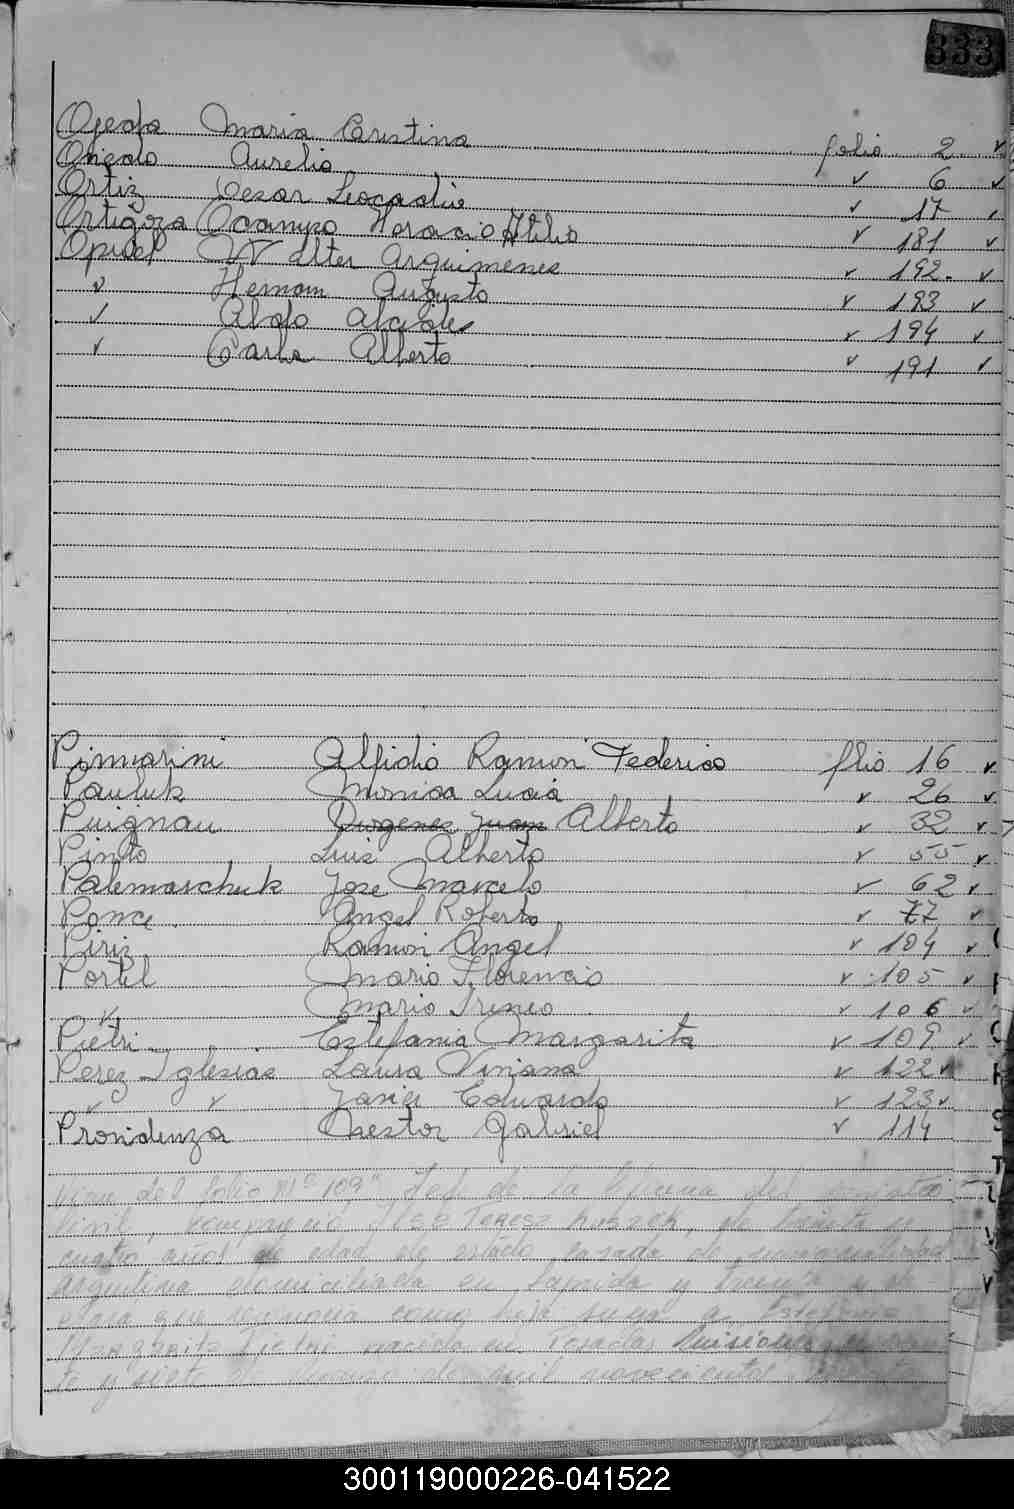 333
Ojeda Maria Cristina folio 2 v
Oviedo Aurelio v 6 v
Ortiz Cesar Leocadio v 17 v
Ortigoza Ocampo Horacio Atilio v 181 v
Opuel Walter Arquimenes v 192. v
v Hernam Augusto v 193 v
v Aldo Alcides v 194 v
v Carlos Alberto v 191 v
Pinmarini Alfidio Ramon Federico flio 16 v
Pauluk Monica Lucia v 26 v
Puignau Diogenes Juan Alberto v 32 v
Pinto Luis Alberto v 55 v
Palemarchuk Jose Marcelo v 62 v
Ponce Angel Roberto v 77 v
Piriz Ramon Angel v 104 v
Portel Mario Florencio v 105 v
v Mario Ireneo v 106 v
Pietri Estefania Margarita v 109 v
Perez Iglesias Laura Viviana v 122 v
v v Javier Eduardo v 123 v
Providenza Nestor Gabriel v 114
Viene del folio Nº 109" de la Oficina del
Civil, compareció de treinta y
cuatro años de edad de estado casada de nacionalidad
argentina domiciliada en y
como hija suya a Estefania
Margarita Pietri nacida en Posadas Misiones
y siete de de mil novecientos
300119000226-041522